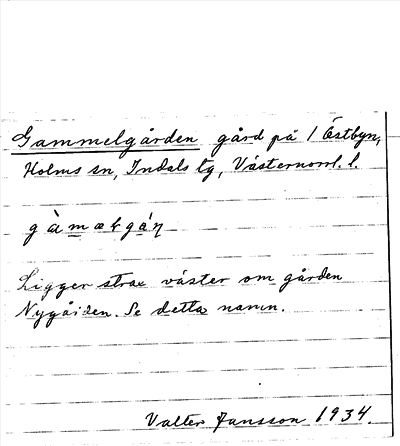 Gammelgården gård på 1 Östbyn,
Holms sn, Indals tg, Västernorrl. l.
gàmælgáɳ
Ligger strax väster om gården
Nygården. Se detta namn.
Valter Jansson 1934.